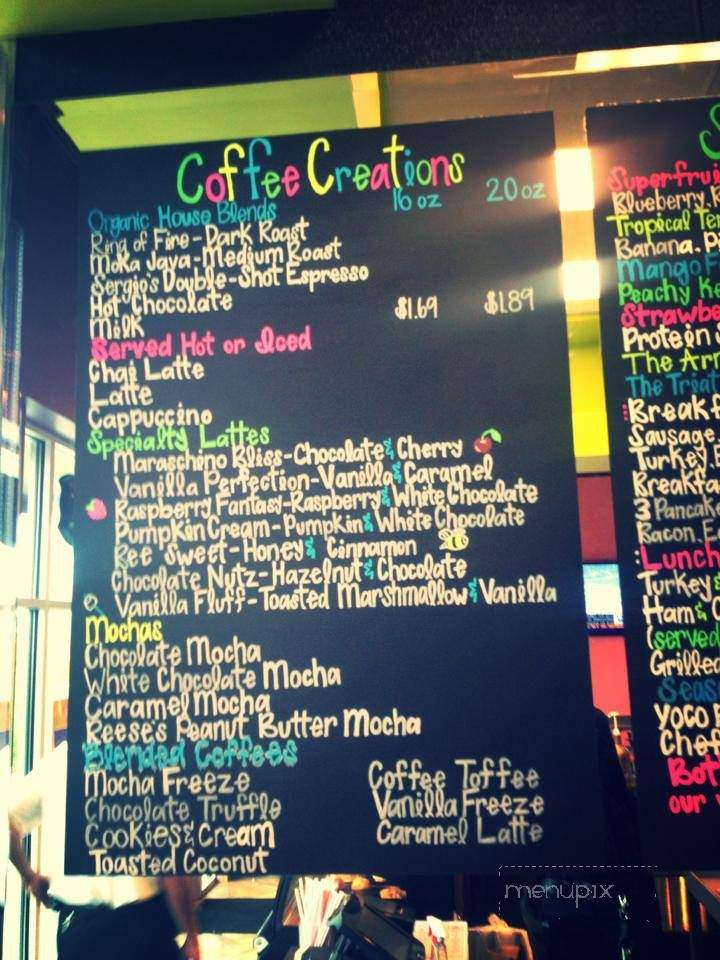 Coffee Creations
16 oz 20 oz
Organic House Blends
Ring of Fire-Dark Roast
Moka Java-Medium Roast
Sergio's Double-Shot Espresso
Hot Chocolate $1.69 $1.89
Milk
Served Hot or Iced
Chai Latte
Latte
Cappuccino
Specialty Lattes
Maraschino Bliss-Chocolate & Cherry
Vanilla Perfection-Vanilla & Caramel
Raspberry Fantasy-Raspberry & White Chocolate
Pumpkin Cream-Pumpkin & White Chocolate
Bee Sweet-Honey & Cinnamon
Chocolate Nutz-Hazelnut & Chocolate
Vanilla Fluff-Toasted Marshmallow & Vanilla
Mochas
Chocolate Mocha
White Chocolate Mocha
Caramel Mocha
Reese's Peanut Butter Mocha
Blended Coffees
Mocha Freeze
Chocolate Truffle
Cookies & Cream
Toasted Coconut
Coffee Toffee
Vanilla Freeze
Caramel Latte
Superfrui
Blueberry,
Tropical
Banana,
Mango
Peachy
Strawbe
Protein
The
The
Breakf
Sausage
Turkey,
Breakfa
3 Pancak
Bacon,
Lunch
Turkey &
Ham &
(served
Grilled
Seas
YoCo
Chef
Bot
our
menupix